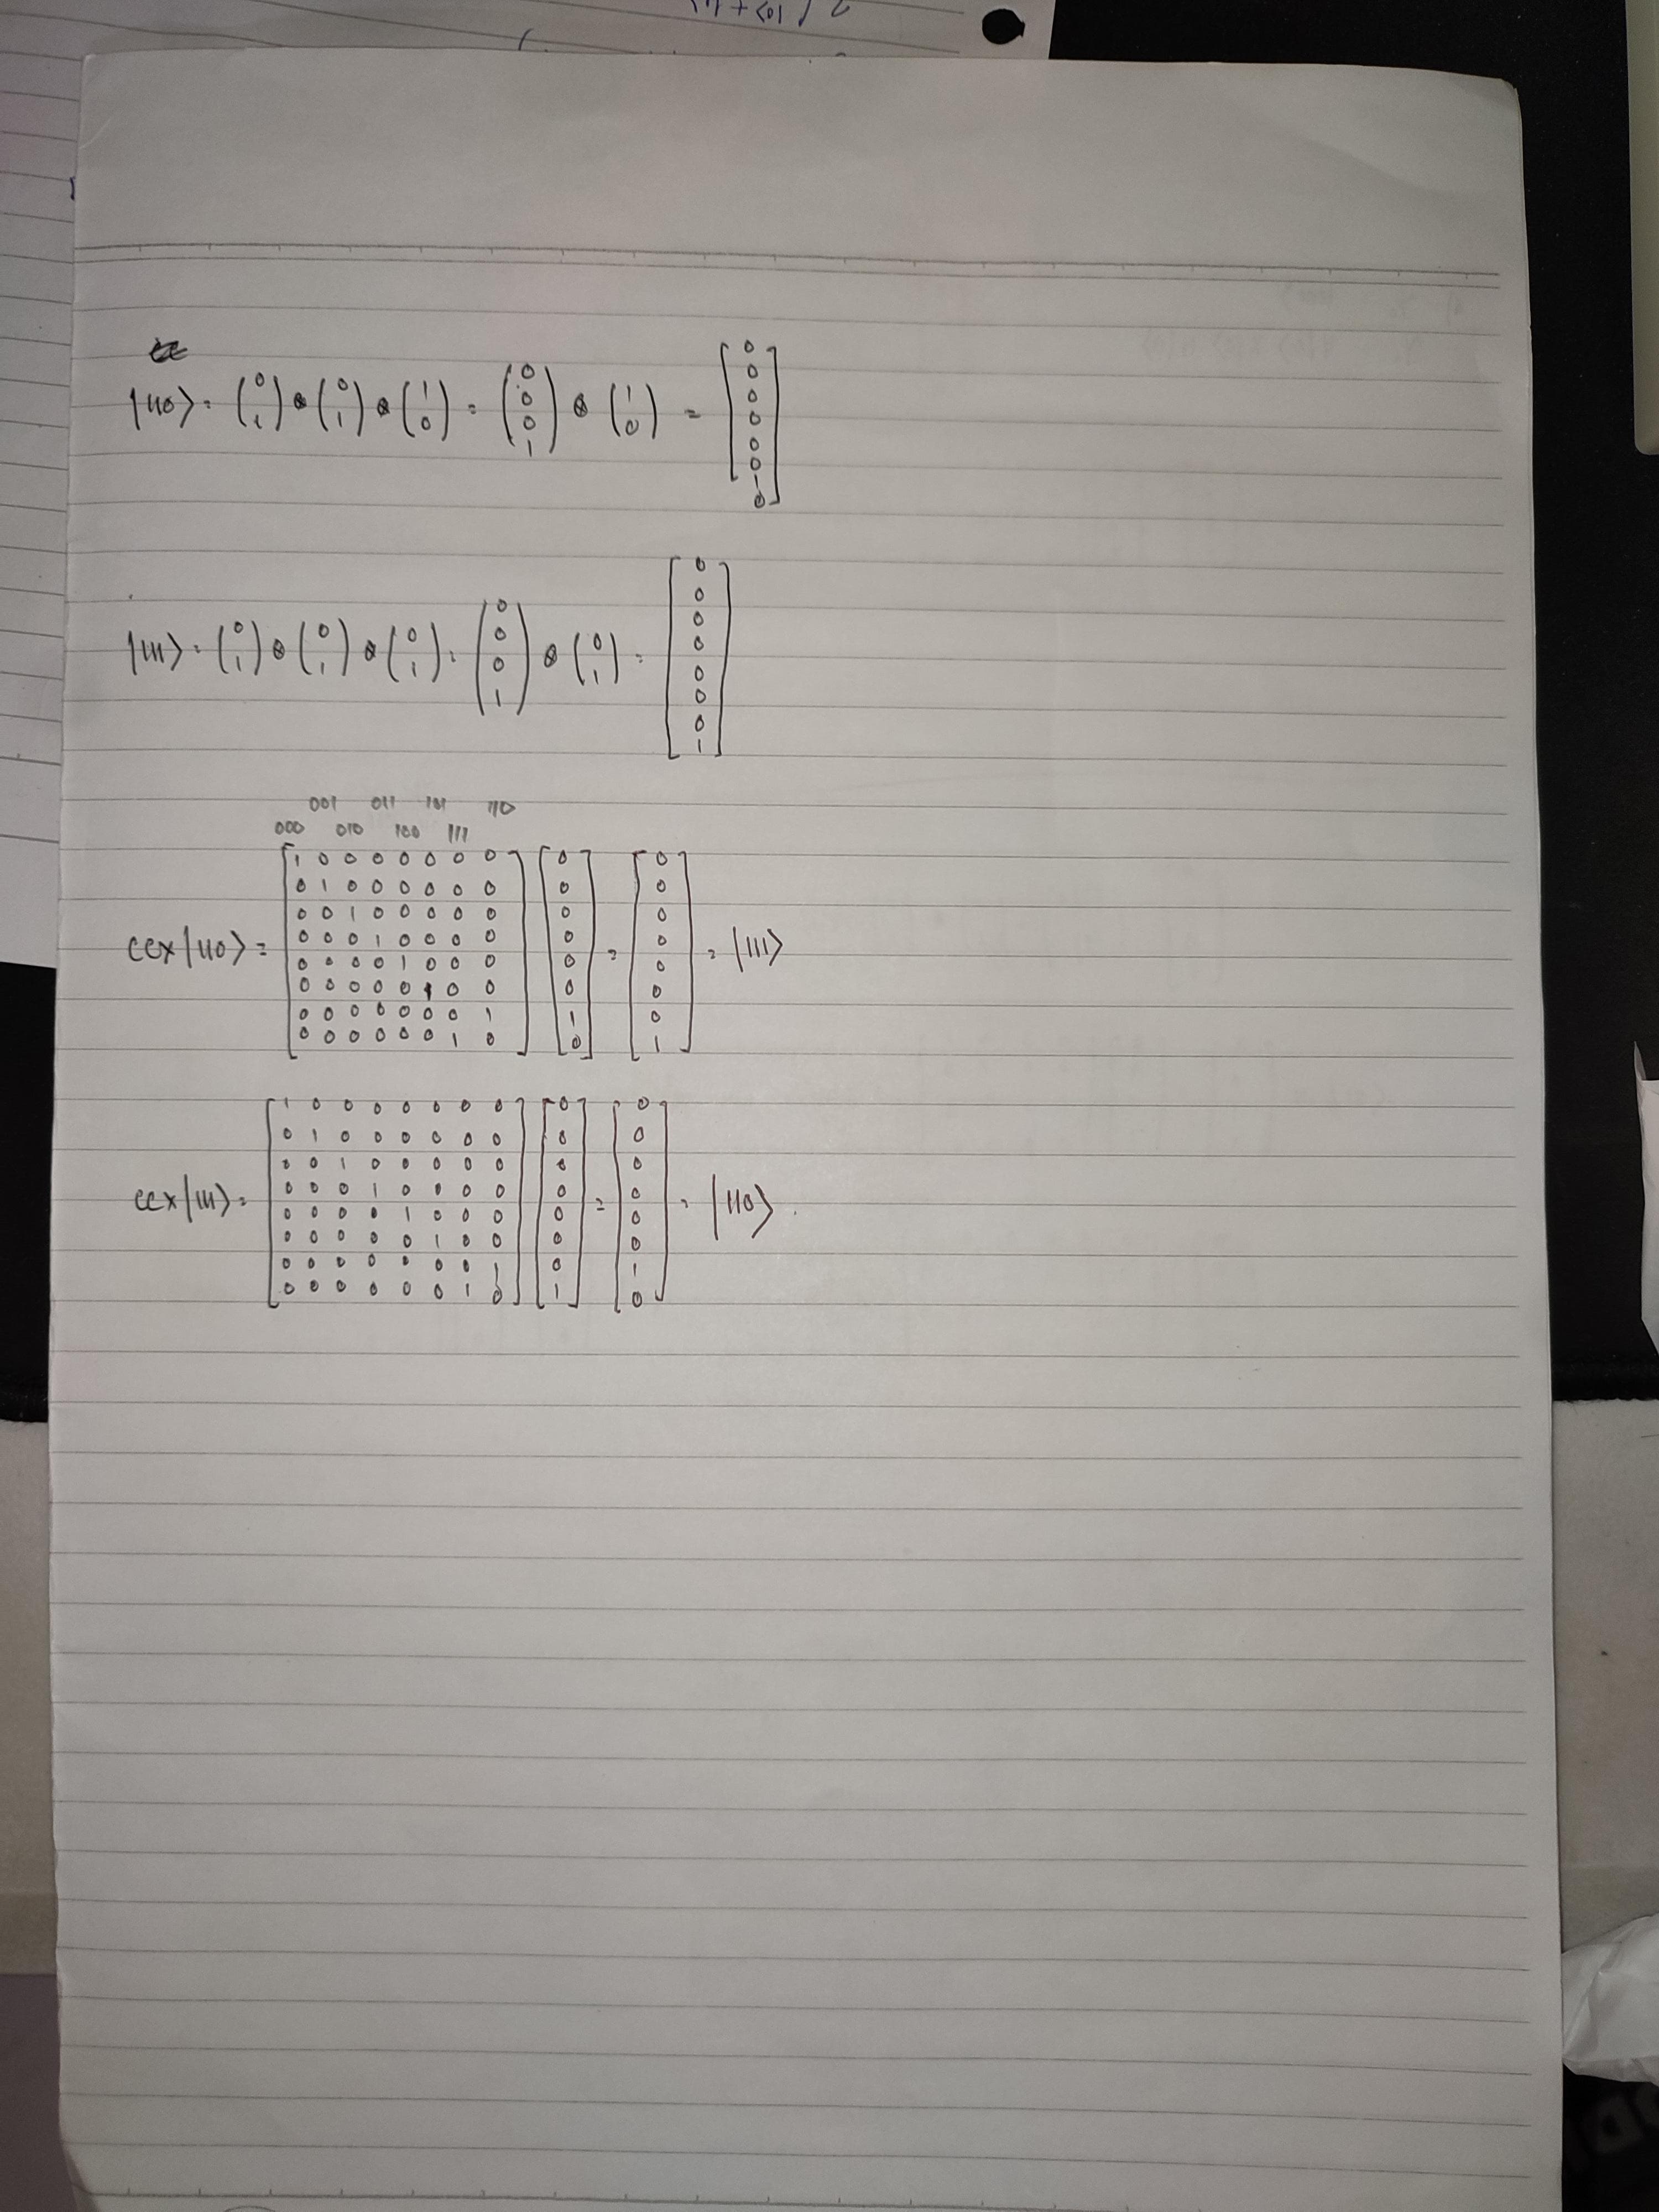 |110⟩ = (0 1) ⊗ (0 1) ⊗ (1 0) = (0 0 0 1) ⊗ (1 0) = [0 0 0 0 0 0 1 0]
|111⟩ = (0 1) ⊗ (0 1) ⊗ (0 1) = (0 0 0 1) ⊗ (0 1) = [0 0 0 0 0 0 0 1]
001 011 101 110
000 010 100 111
ccx|110⟩ =
1 0 0 0 0 0 0 0
0 1 0 0 0 0 0 0
0 0 1 0 0 0 0 0
0 0 0 1 0 0 0 0
0 0 0 0 1 0 0 0
0 0 0 0 0 1 0 0
0 0 0 0 0 0 0 1
0 0 0 0 0 0 1 0
[0 0 0 0 0 0 1 0] = [0 0 0 0 0 0 0 1] = |111⟩
ccx|111⟩ =
1 0 0 0 0 0 0 0
0 1 0 0 0 0 0 0
0 0 1 0 0 0 0 0
0 0 0 1 0 0 0 0
0 0 0 0 1 0 0 0
0 0 0 0 0 1 0 0
0 0 0 0 0 0 0 1
0 0 0 0 0 0 1 0
[0 0 0 0 0 0 0 1] = [0 0 0 0 0 0 1 0] = |110⟩.